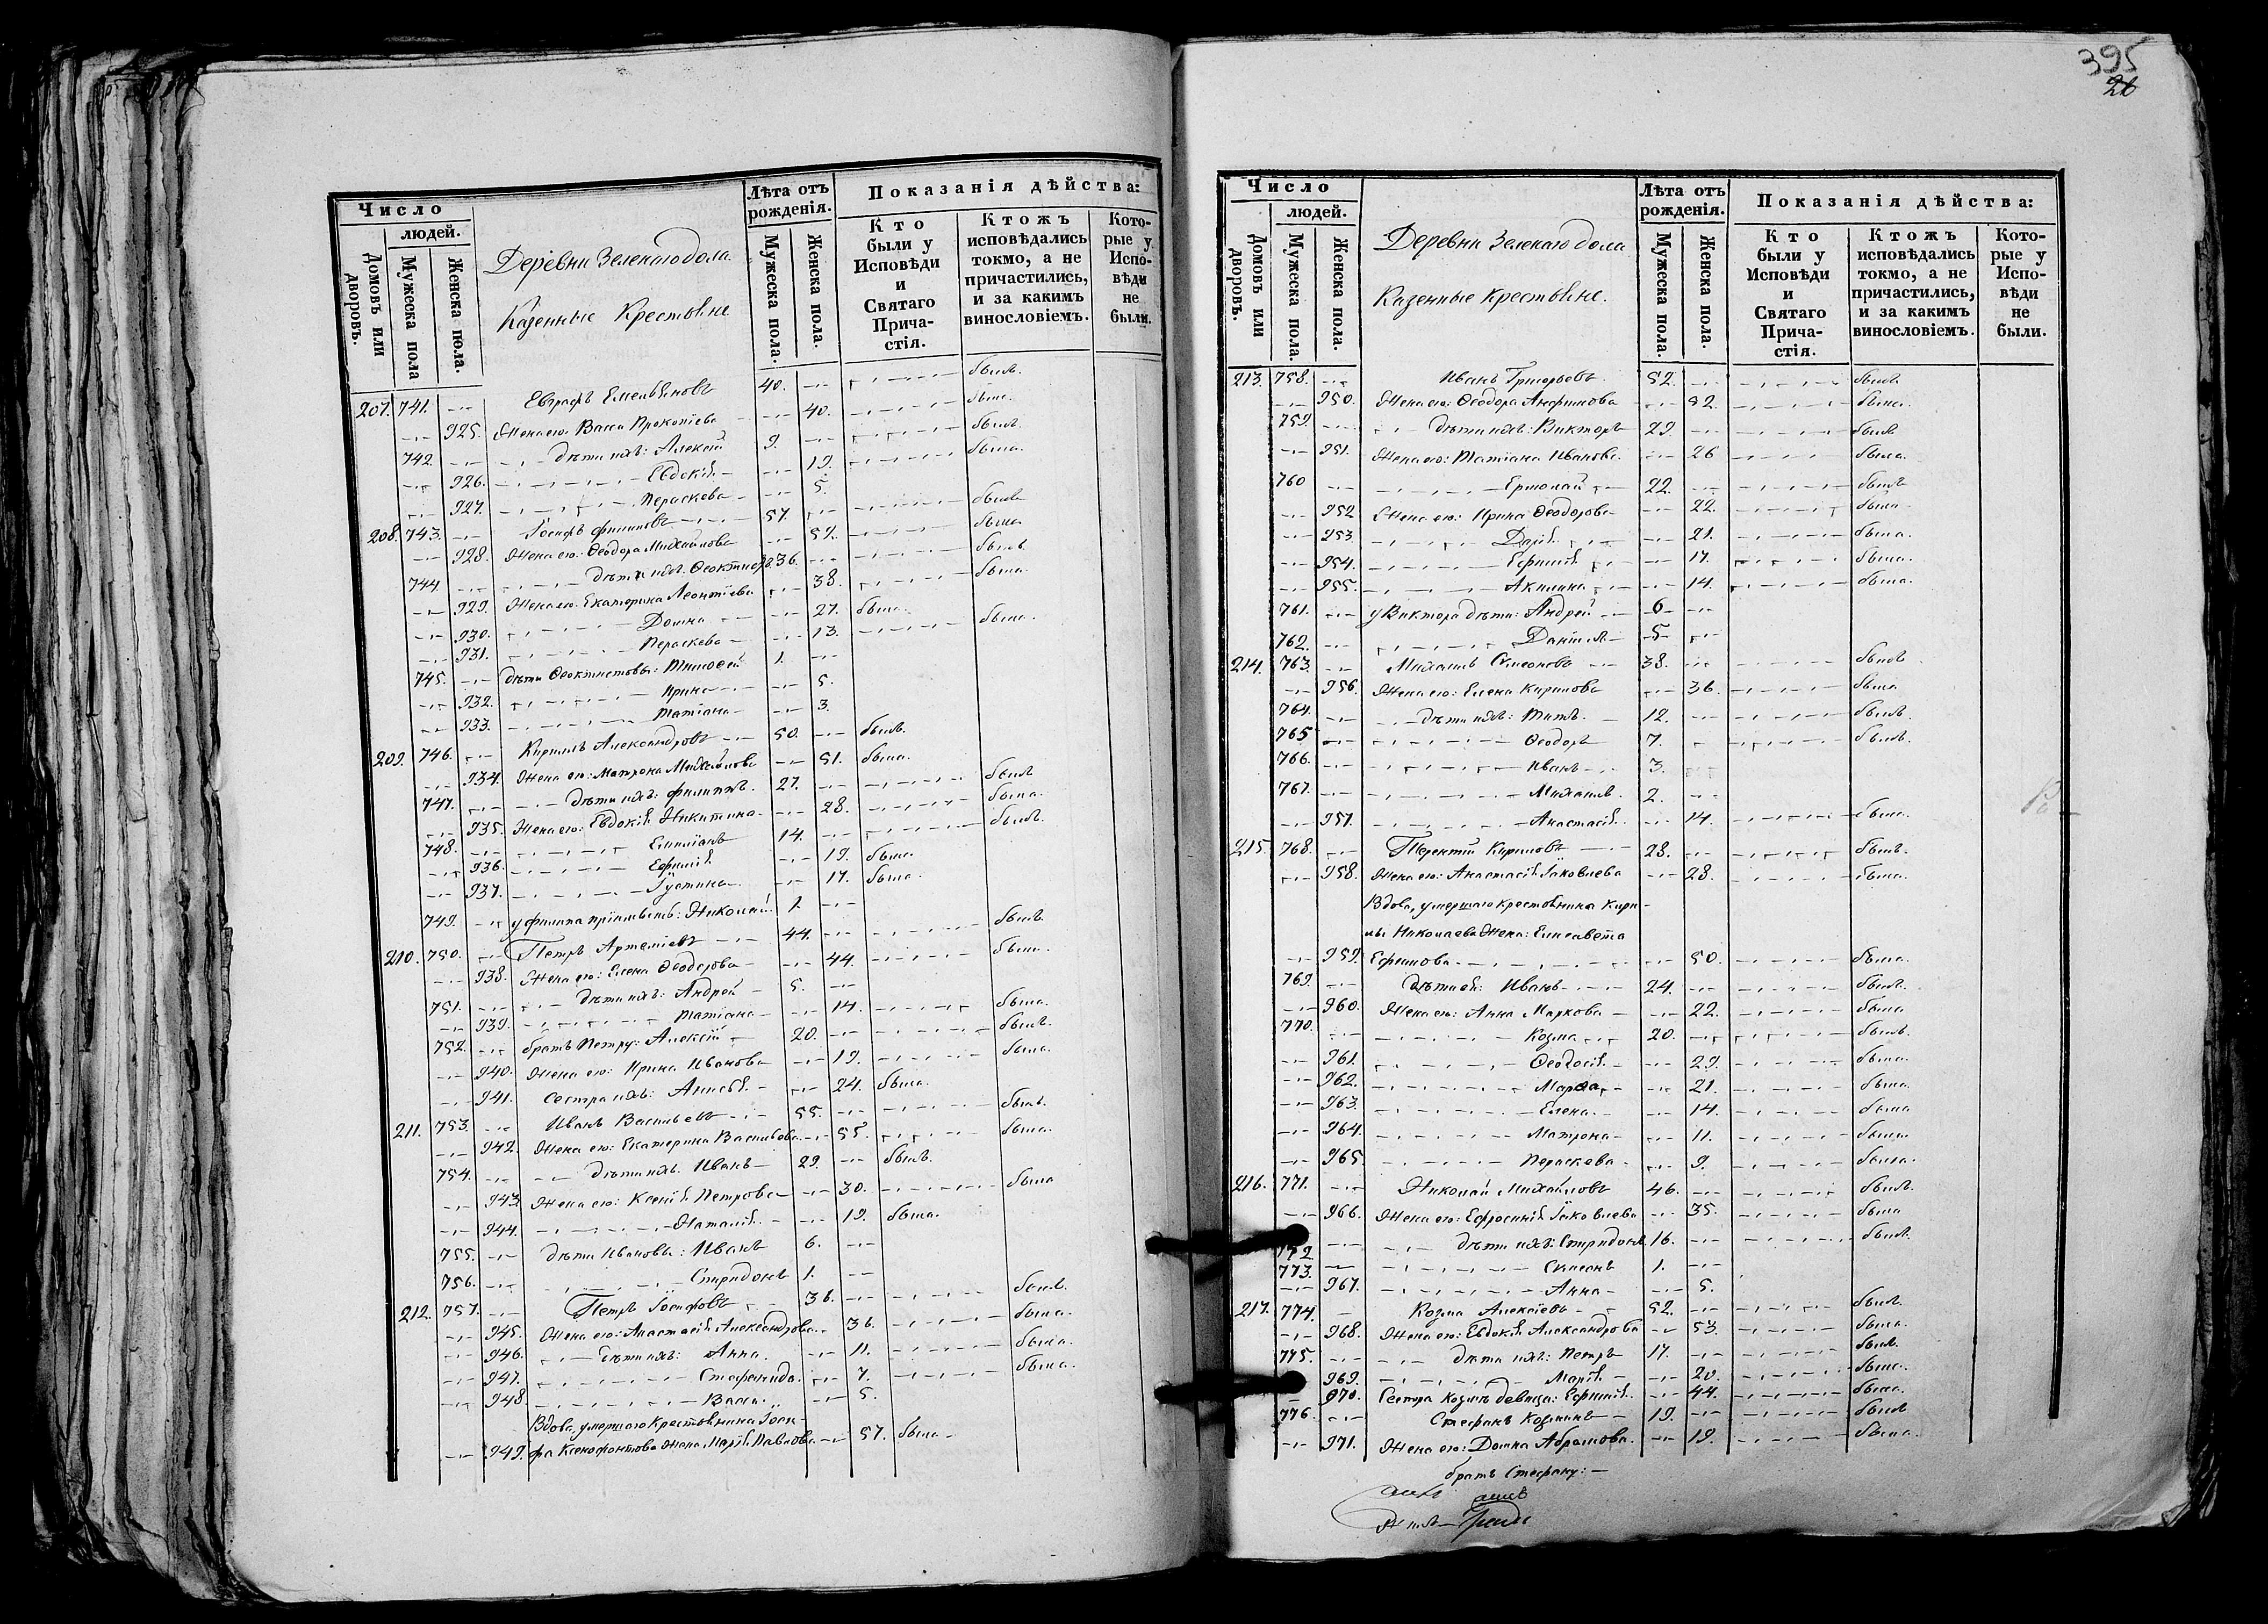 Число
людей.
Домовъ или дворовъ.
Мужеска пола
Женска пола.
Деревни Зеленаго дола.
Казенные Крестьяне
Лѣта отъ рожденія.
Мужеска пола.
Женска пола.
Показанія дѣйства:
Кто были у Исповѣди и Святаго Причастія.
Ктожъ исповѣдались токмо, а не причастились, и за какимъ винословіемъ.
Которые у Исповѣди не были.
207. 741. Евграфъ Емельяновъ 40. былъ.
925. Жена его Васса Прокопіева 40. была.
742. дѣти ихъ: Алексій 9. былъ.
926. Евдокія 19. была.
927. Параскева 5.
208. 743. Іосифъ Филиповъ 57. былъ
928. Жена его: Ѳеодора Михайлова 59. была
744. дѣти ихъ: Ѳеоктистъ 36. былъ
929. Жена его. Екатерина Леонтіева 38. была.
930. Домна 27. была.
931. Параскева 13. была.
745. дѣти Ѳеоктистовы: Тимоѳей 1.
932. Ирина 5.
933. Татіана 3.
209. 746. Кириллъ Александровъ 50. былъ.
934. Жена его: Матрона Михайлова 51. была.
747. дѣти ихъ: Филиппъ. 27. былъ
935. Жена его: Евдокія Никитина 28. была.
748. Емиліанъ 14. былъ.
936. Ефимія 19. была.
937. Іустина 17. была.
749. у Филипа Николай 1.
210. 750. Петръ Артеміевъ 44. былъ.
938. Жена его: Елена Ѳеодорова 44. была.
751. дѣти ихъ: Андрей 5.
939. Татіана 14. была.
752. братъ Петру: Алексій 20. былъ.
940. Жена его: Ирина Иванова 19. была.
941. Сестра ихъ: 24. была.
211. 753. Иванъ Васильевъ 55. былъ.
942. Жена его: Екатерина Васильева 55. была.
754. дѣти ихъ. Иванъ 29. былъ.
943. Жена его: Ксенія Петрова 30. была
944. Наталія 19. была.
755. дѣти Ивановы: Иванъ 6.
756. Спиридонъ 1.
212. 757. Петръ Іосифовъ 36. былъ.
945. Жена его: Анастасія Александрова 36. была.
946. дѣти ихъ: Анна. 11. была.
947. Стефанида. 7. была.
948. Васса. 5.
Вдова, умершаго Крестьянина Іоси-
949. фа Ксенофонтова Жена Марія Павлова 57. была
395
26
Число
людей.
Домовъ или дворовъ.
Мужеска пола.
Женска пола.
Деревни Зеленаго дола
Казенные Крестьяне.
Лѣта отъ рожденія.
Мужеска пола.
Женска пола.
Показанія дѣйства:
Кто были у Исповѣди и Святаго Причастія.
Ктожъ исповѣдались токмо, а не причастились, и за какимъ винословіемъ.
Которые у Исповѣди не были.
213. 758. Иванъ Григорьевъ. 52. былъ
950. Жена его: Ѳеодора Анфимова 52. была.
759. дѣти ихъ: Викторъ 29. былъ
951. Жена его: Татіана Иванова. 26 была.
760 Ермолай 22. былъ
952 Жена его: Ирина Ѳеодорова 22. была.
953. Дарія 21. была.
954. Ефимія 17. была.
955. Акилина 14. была.
761. у Виктора дѣти: Андрей 6
762. Даніилъ 5
214. 763. Михаилъ Симеоновъ 38. былъ.
956. Жена его: Елена Кирилова 36. была
764. дѣти ихъ: Титъ. 12. былъ.
765 Ѳеодоръ 7. былъ.
766. Иванъ 3.
767. Михаилъ. 2.
957. Анастасія 14. была.
215. 768. Терентій Кириловъ 28. былъ.
958. Жена его: Анастасія Іаковлева 28. была.
Вдова, умершаго крестьянина Кири-
лы Николаева Жена: Елисавета
959. Ефимова 50. была.
769. Дѣти ея: Иванъ 24. былъ.
960. Жена его: Анна Маркова 22. была
770. Козма 20. былъ.
961. Ѳеодосія 29. была.
962. Марѳа 21. была.
963. Елена. 14. была
964. Матрона 11. была.
965. Параскева 9. была.
216. 771. Николай Михайловъ 46. былъ.
966. Жена его: Ефросинія Іаковлева 35. была
772. дѣти ихъ: Спиридонъ. 16. былъ.
773. Симеонъ 1.
967. Анна 5.
217. 774. Козма Алексіевъ 52. былъ.
968. Жена его: Евдокія Александрова 53. была.
775. дѣти ихъ: Петръ 17. былъ.
969. Марія 20. была.
970. Сестра Козмѣ девица: Ефимія. 44. была.
776. Стефанъ Козминъ 19. былъ
971. Жена его: Домна Абрамова. 19. была.
братъ Стефану: